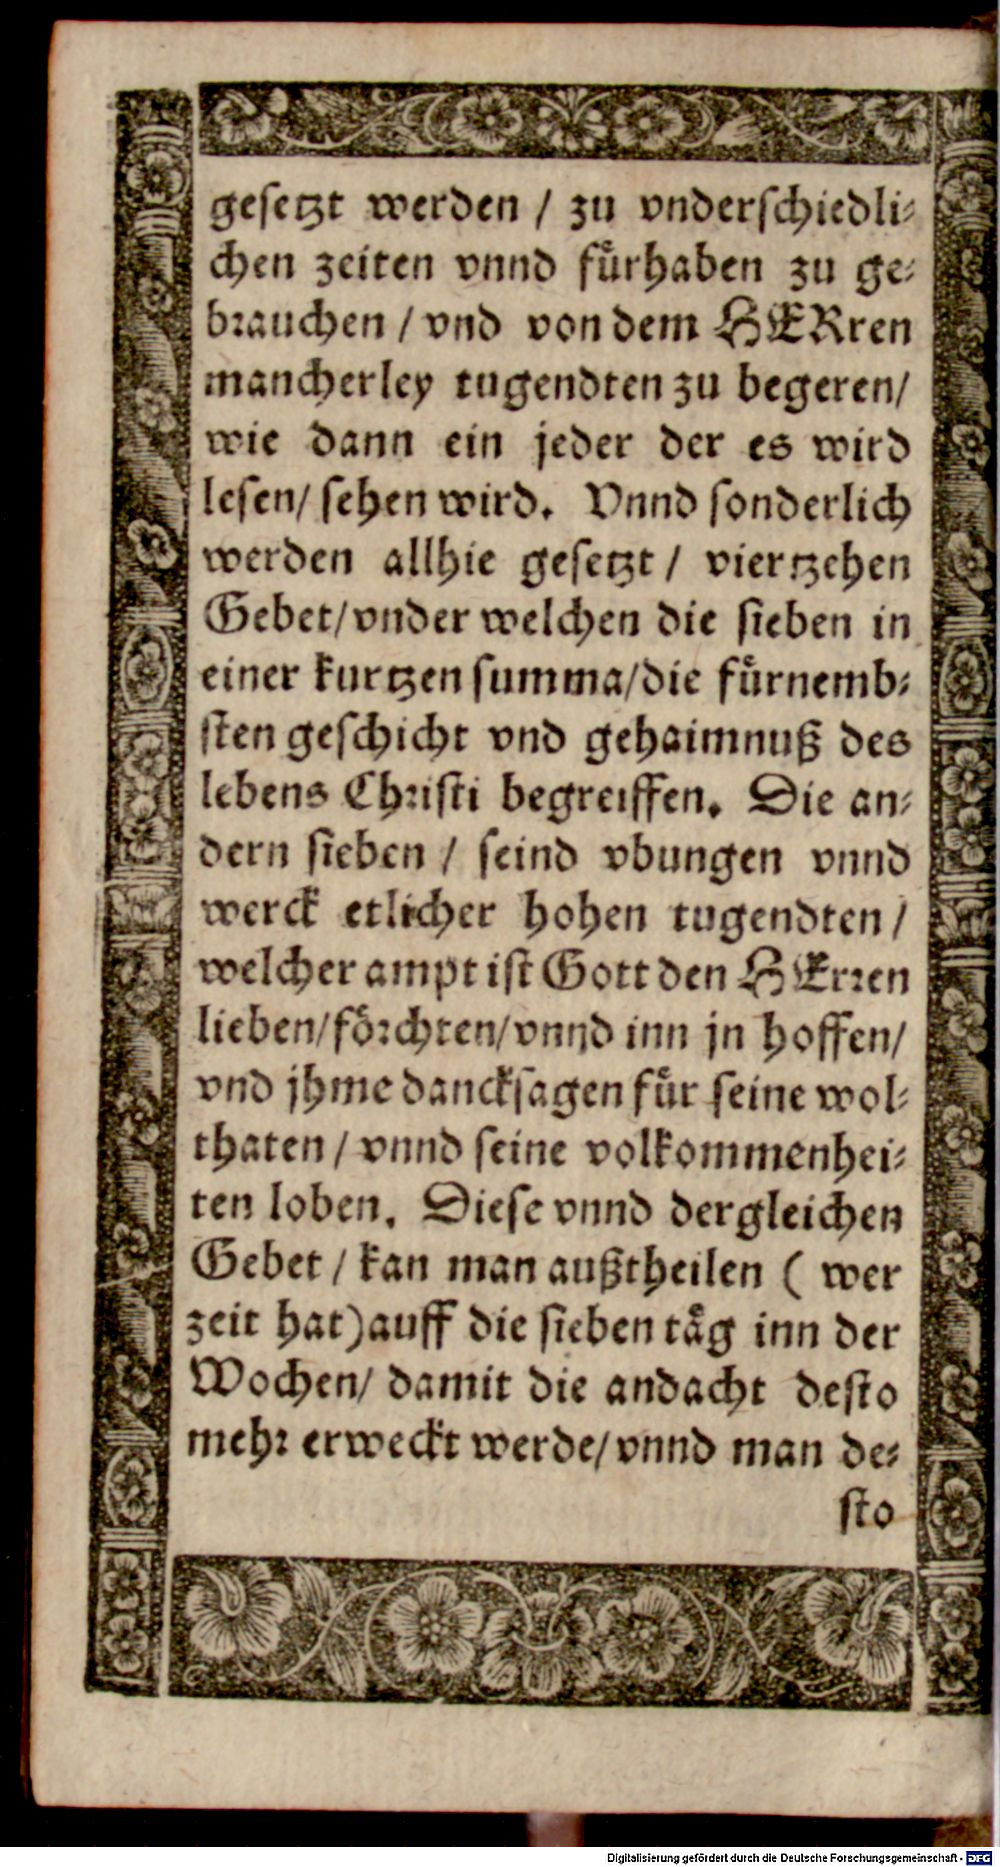 gesetzt werden / zu vnderschiedli-
chen zeiten vnnd fürhaben zu ge-
brauchen / vnd von dem HERren
mancherley tugendten zu begeren/
wie dann ein jeder der es wird
lesen/ sehen wird. Vnnd sonderlich
werden allhie gesetzt / viertzehen
Gebet/vnder welchen die sieben in
einer kurtzen summa/die fürnemb-
sten geschicht vnd gehaimnuß des
lebens Christi begreiffen. Die an-
dern sieben / seind vbungen vnnd
werck etlicher hohen tugendten /
welcher ampt ist Gott den HErren
lieben/förchten/vnnd inn jn hoffen/
vnd jhme dancksagen für seine wol-
thaten / vnnd seine volkommenhei-
ten loben. Diese vnnd dergleichen
Gebet / kan man außtheilen ( wer
zeit hat)auff die sieben täg inn der
Wochen/ damit die andacht desto
mehr erweckt werde/vnnd man de-
sto
Digitalisierung gefördert durch die Deutsche Forschungsgemeinschaft - DFG